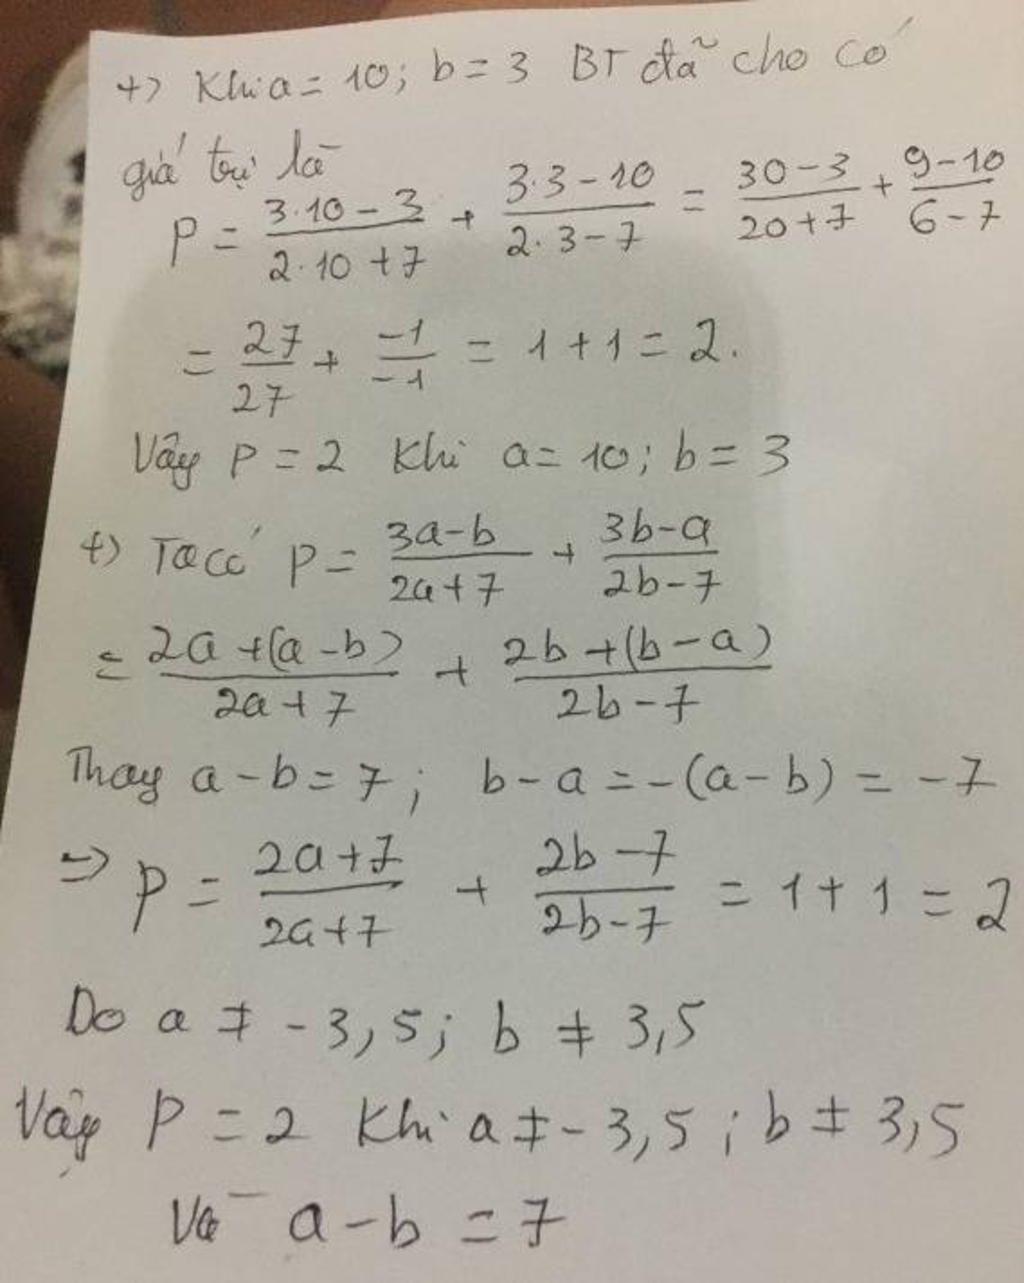 +) Khi a = 10; b = 3 BT đã cho có
giá trị là
P = \frac{3.10 - 3}{2.10 + 7} + \frac{3.3 - 10}{2.3 - 7} = \frac{30 - 3}{20 + 7} + \frac{9 - 10}{6 - 7}
= \frac{27}{27} + \frac{-1}{-1} = 1 + 1 = 2.
Vậy P = 2 Khi a = 10; b = 3
+) Ta có P = \frac{3a - b}{2a + 7} + \frac{3b - a}{2b - 7}
= \frac{2a + (a - b)}{2a + 7} + \frac{2b + (b - a)}{2b - 7}
Thay a - b = 7; b - a = -(a - b) = -7
=> P = \frac{2a + 7}{2a + 7} + \frac{2b - 7}{2b - 7} = 1 + 1 = 2
Do a ≠ -3,5; b ≠ 3,5
Vậy P = 2 Khi a ≠ -3,5; b ≠ 3,5
Và a - b = 7